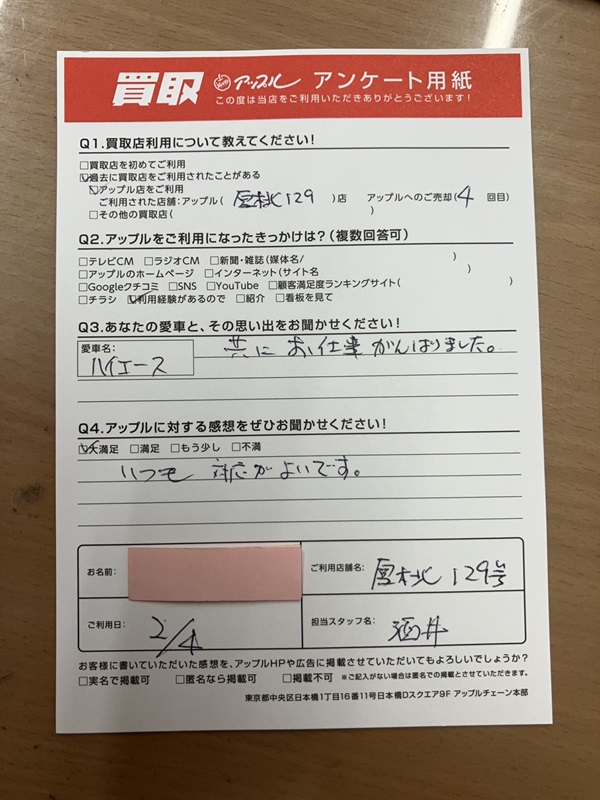 買取 アップル アンケート用紙
この度は当店をご利用いただきありがとうございます!
Q1.買取店利用について教えてください!
□買取店を初めてご利用
☑過去に買取店をご利用されたことがある
☑アップル店をご利用
ご利用された店舗:アップル( 厚木北129 )店 アップルへのご売却(4 回目)
□その他の買取店( )
Q2.アップルをご利用になったきっかけは?(複数回答可)
□テレビCM □ラジオCM □新聞・雑誌(媒体名/ )
□アップルのホームページ □インターネット(サイト名 )
□Googleクチコミ □SNS □YouTube □顧客満足度ランキングサイト( )
□チラシ ☑利用経験があるので □紹介 □看板を見て
Q3.あなたの愛車と、その思い出をお聞かせください!
愛車名:
ハイエース 共にお仕事がんばりました。
Q4.アップルに対する感想をぜひお聞かせください!
☑大満足 □満足 □もう少し □不満
いつも 対応がよいです。
お名前: ご利用店舗名: 厚木北129号
ご利用日: 2/4 担当スタッフ名: 酒井
お客様に書いていただいた感想を、アップルHPや広告に掲載させていただいてもよろしいでしょうか?
□実名で掲載可 □匿名なら掲載可 □掲載不可 ※ご記入がない場合は匿名での掲載とさせていただきます。
東京都中央区日本橋1丁目16番11号日本橋Dスクエア9F アップルチェーン本部